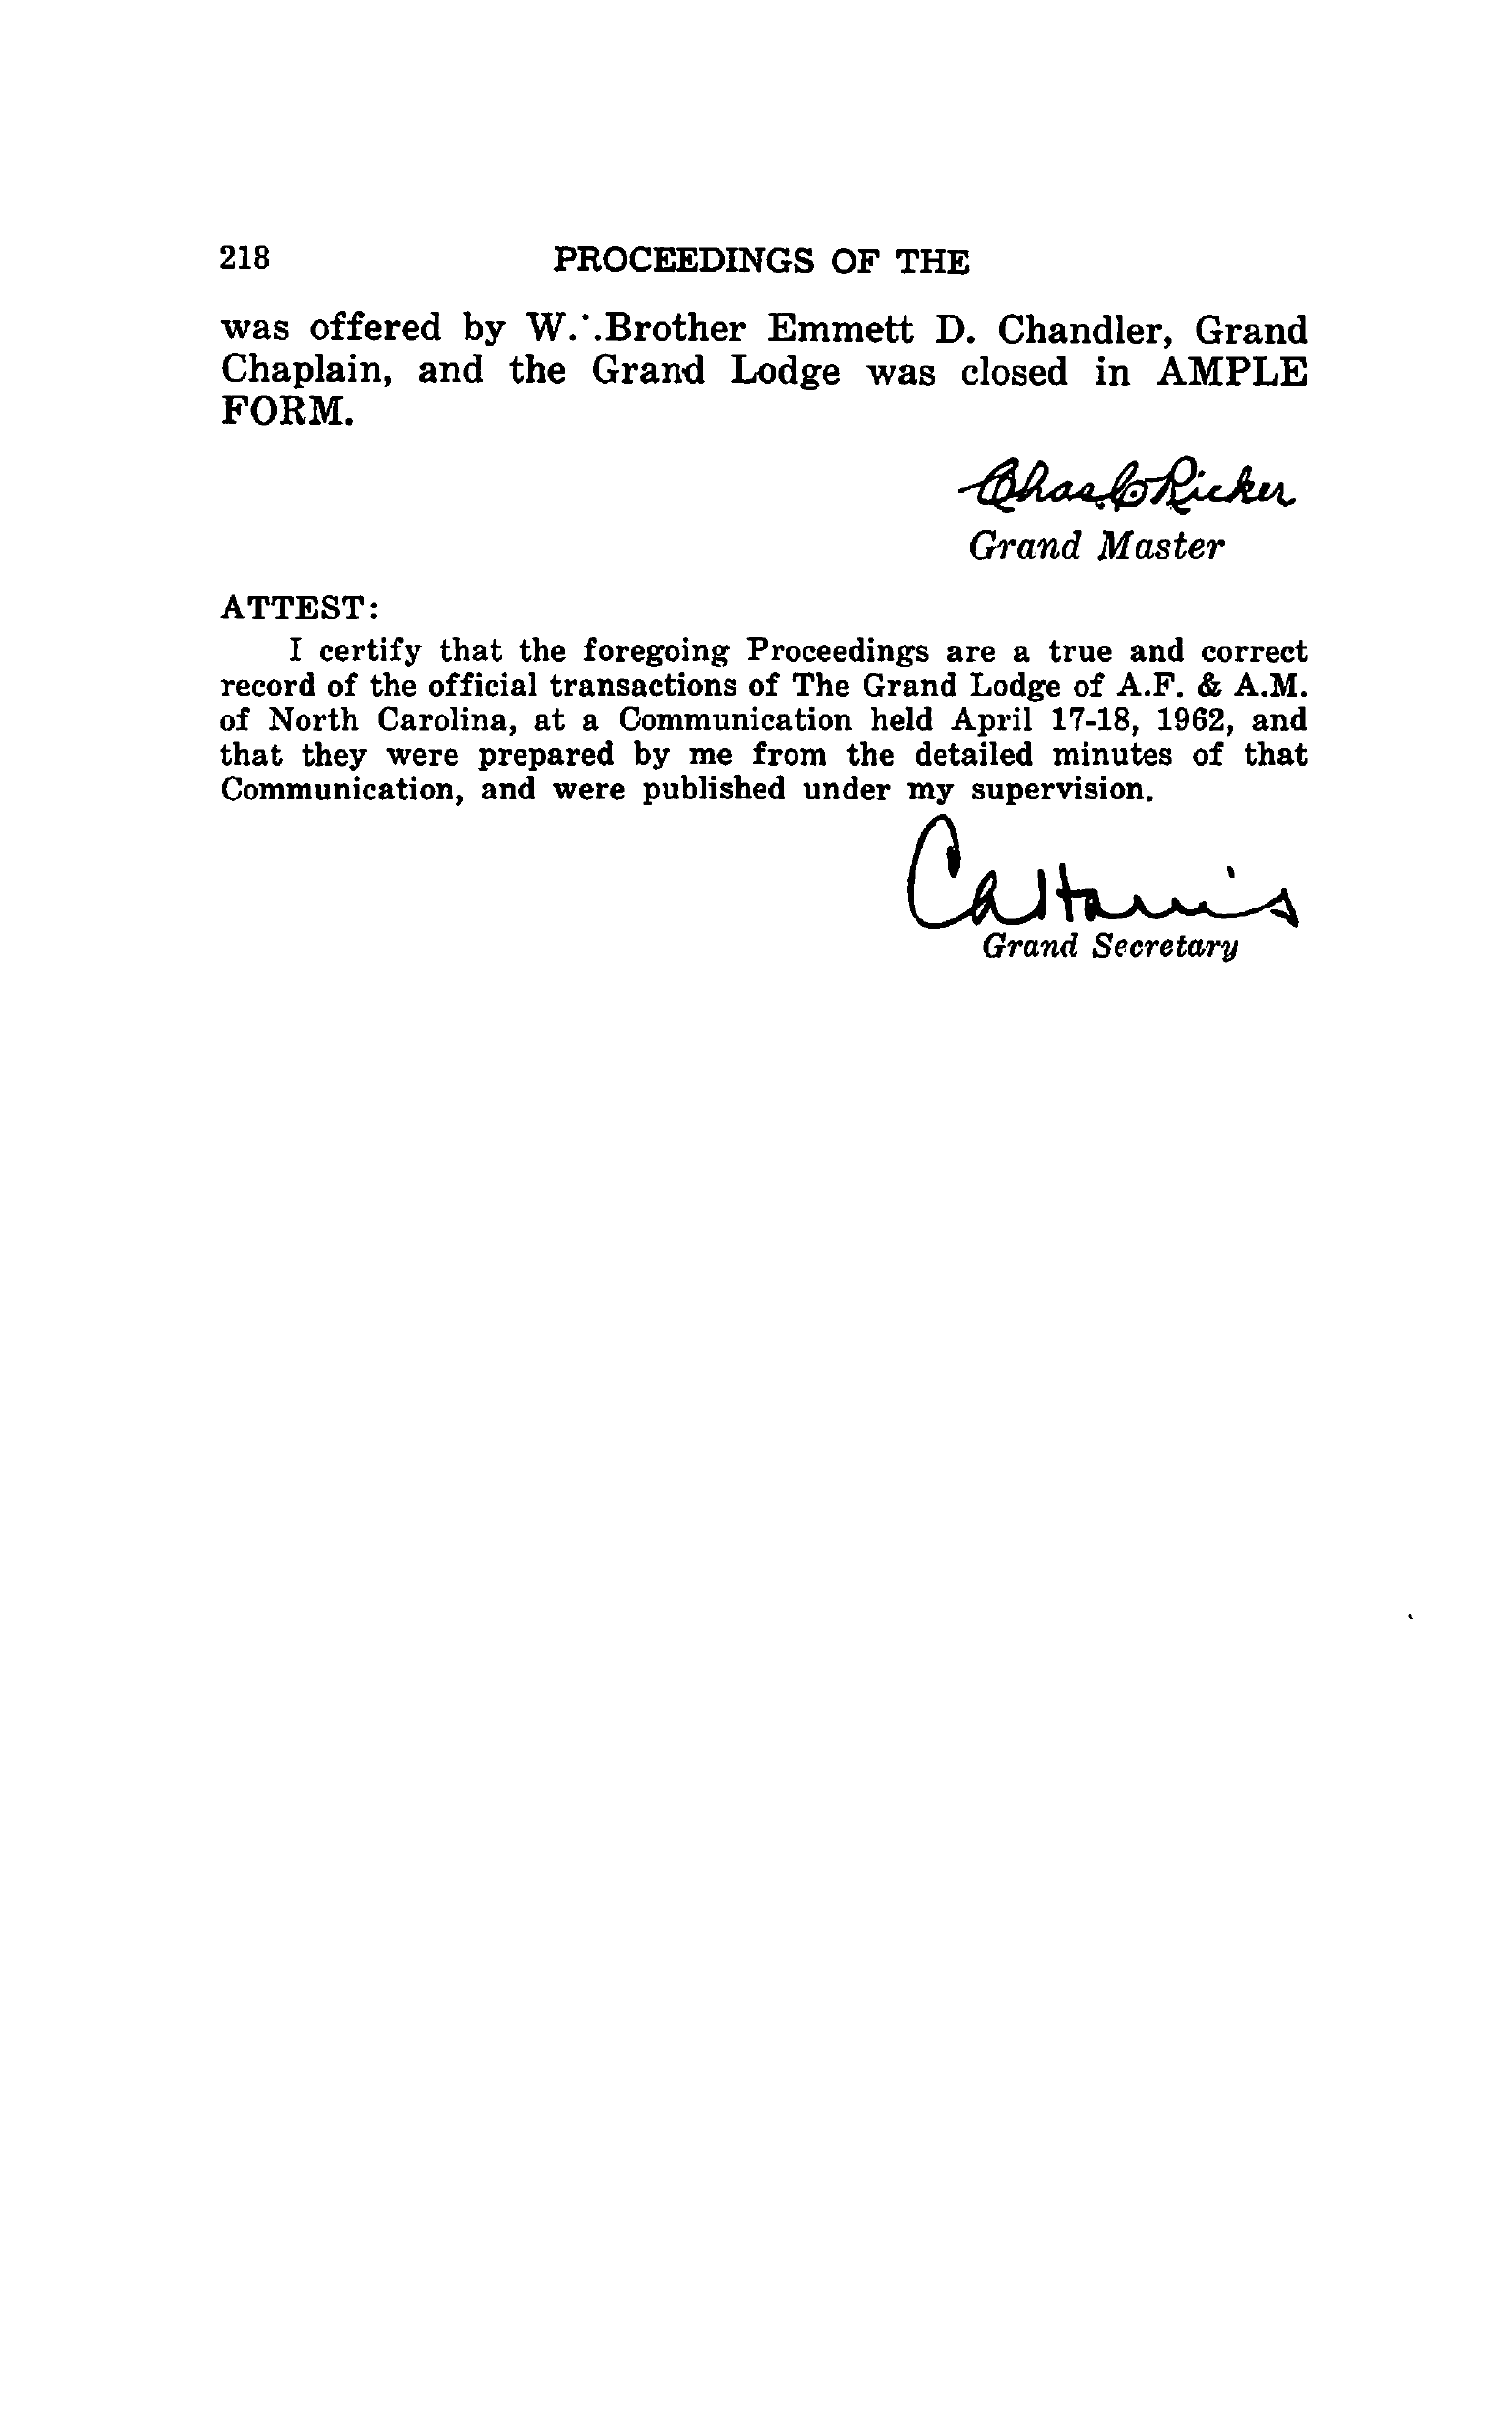 218 PROCEEDINGS OF THE
was offered by W.∴Brother Emmett D. Chandler, Grand
Chaplain, and the Grand Lodge was closed in AMPLE
FORM.
Chas. C. Ricker
Grand Master
ATTEST:
I certify that the foregoing Proceedings are a true and correct
record of the official transactions of The Grand Lodge of A.F. & A.M.
of North Carolina, at a Communication held April 17-18, 1962, and
that they were prepared by me from the detailed minutes of that
Communication, and were published under my supervision.
Grand Secretary